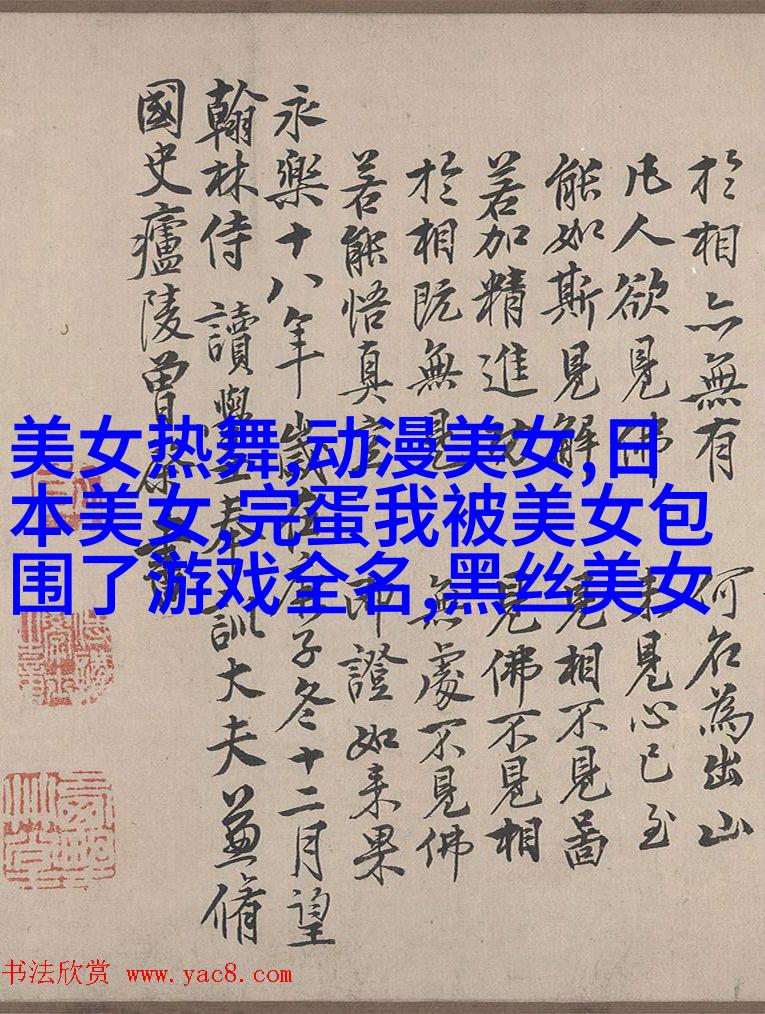 於相亦無有 何名為出山
凡人欲見佛 未見心已至
能如斯見解 見相不見啚
若加精進 見佛不見相
於相既無見 無處不見佛
若能悟真空 證如来果
永樂十八年歲在庚子冬十二月望
翰林侍讀學士奉訓大夫兼脩
國史廬陵曾棨書
美女热舞,动漫美女,日
本美女,完蛋我被美女包
围了游戏全名,黑丝美女
书法欣赏 www.yac8.com